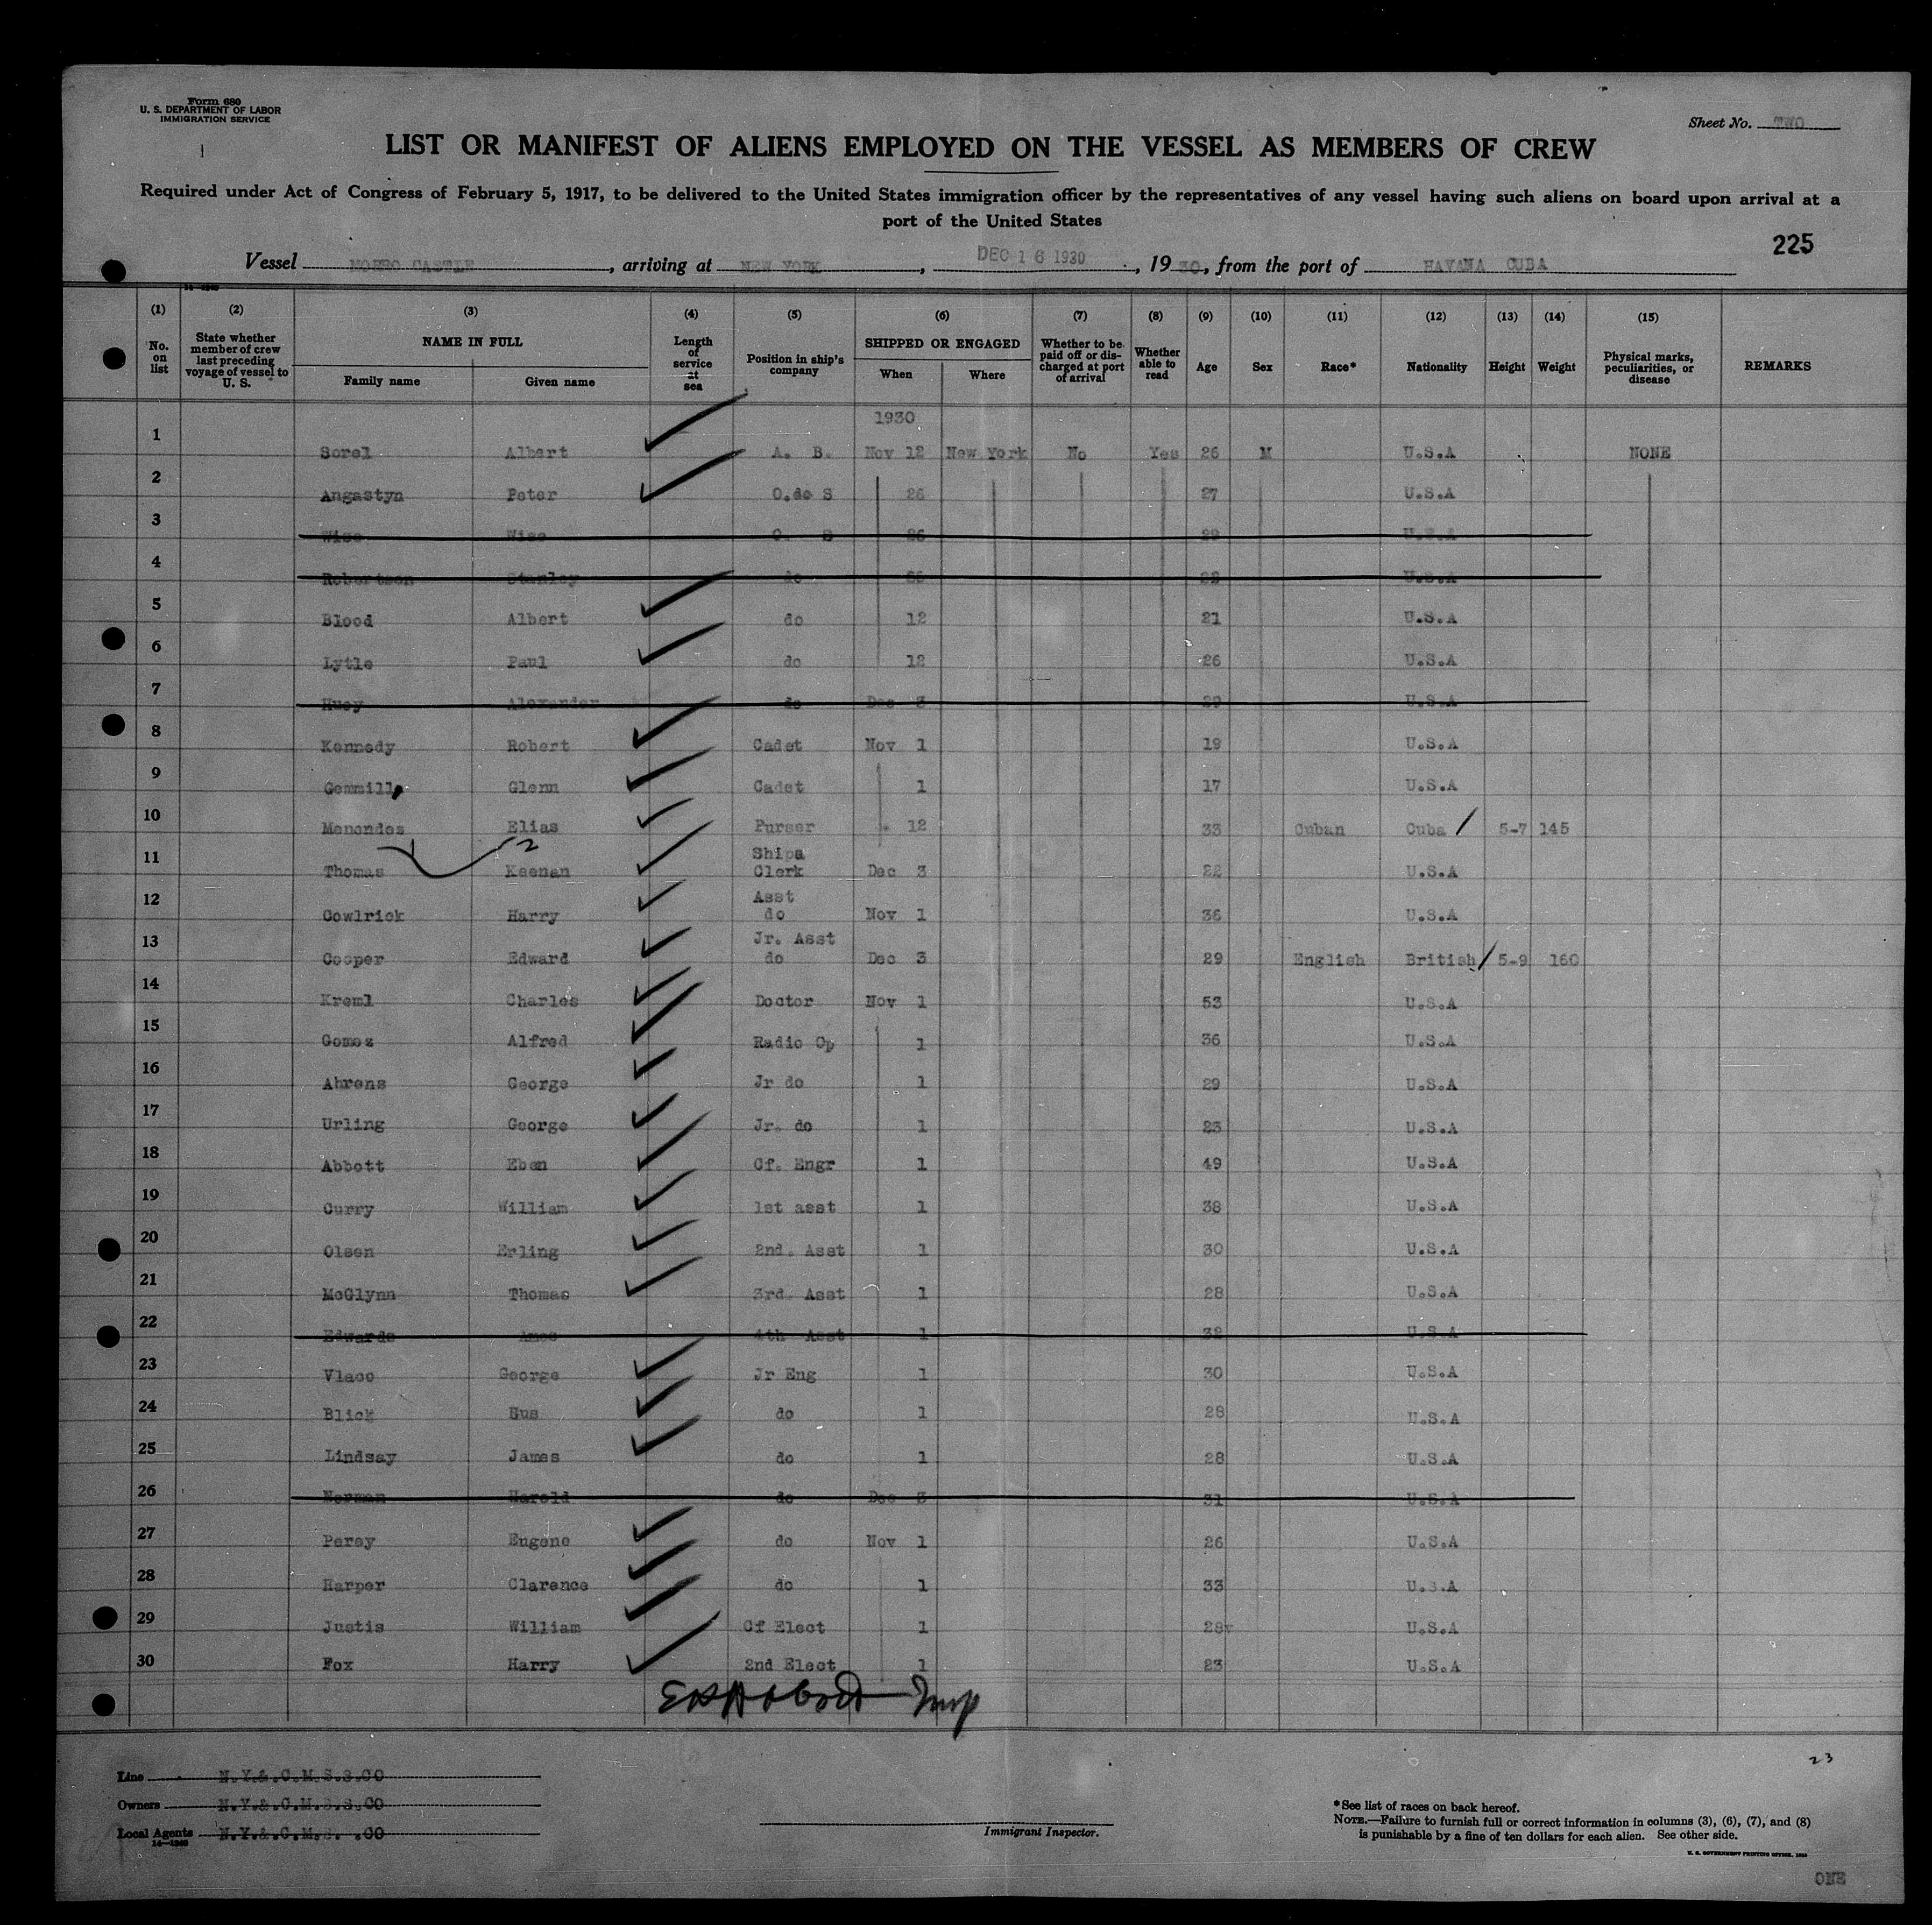 Form 680
U. S. DEPARTMENT OF LABOR
IMMIGRATION SERVICE
Sheet No. TWO
LIST OR MANIFEST OF ALIENS EMPLOYED ON THE VESSEL AS MEMBERS OF CREW
Required under Act of Congress of February 5, 1917, to be delivered to the United States immigration officer by the representatives of any vessel having such aliens on board upon arrival at a
port of the United States
225
Vessel MORRO CASTLE, arriving at NEW YORK, DEC 16 1930, 1930, from the port of HAVANA CUBA
(1) No. on list (2) State whether member of crew last preceding voyage of vessel to U. S. (3) NAME IN FULL Family name Given name (4) Length of service at sea (5) Position in ship's company (6) SHIPPED OR ENGAGED When Where (7) Whether to be paid off or discharged at port of arrival (8) Whether able to read (9) Age (10) Sex (11) Race* (12) Nationality (13) Height (14) Weight (15) Physical marks, peculiarities, or disease REMARKS
1930
1 Sorel Albert A. B. Nov 12 New York No Yes 26 M U.S.A NONE
2 Angastyn Peter O.do S 26 27 U.S.A
3 Wise Wise O. S 26 29 U.S.A
4 Robertson Stanley do 26 22 U.S.A
5 Blood Albert do 12 21 U.S.A
6 Lytle Paul do 12 26 U.S.A
7 Huey Alexander do Dec 3 29 U.S.A
8 Kennedy Robert Cadet Nov 1 19 U.S.A
9 Gemmill Glenn Cadet 1 17 U.S.A
10 Menendes Elias Purser 12 33 Cuban Cuba 5-7 145
11 Thomas Keenan Ships Clerk Dec 3 22 U.S.A
12 Cowlrick Harry Asst do Nov 1 36 U.S.A
13 Cooper Edward Jr. Asst do Dec 3 29 English British 5-9 160
14 Kreml Charles Doctor Nov 1 53 U.S.A
15 Gomez Alfred Radio Op 1 36 U.S.A
16 Ahrens George Jr do 1 29 U.S.A
17 Urling George Jr. do 1 23 U.S.A
18 Abbott Eben Cf. Engr 1 49 U.S.A
19 Curry William 1st asst 1 38 U.S.A
20 Olsen Erling 2nd. Asst 1 30 U.S.A
21 McGlynn Thomas 3rd. Asst 1 28 U.S.A
22 Edwards Amos 4th Asst 1 32 U.S.A
23 Vlaco George Jr Eng 1 30 U.S.A
24 Blick Gus do 1 28 U.S.A
25 Lindsay James do 1 28 U.S.A
26 Norman Harold do Dec 3 31 U.S.A
27 Peray Eugene do Nov 1 26 U.S.A
28 Harper Clarence do 1 33 U.S.A
29 Justis William Cf Elect 1 28 U.S.A
30 Fox Harry 2nd Elect 1 23 U.S.A
23
Line N.Y.&.C.M.S.S.CO
Owners N.Y.&.C.M.S.S.CO
Local Agents N.Y.&.C.M.S. .CO
14—1240
Immigrant Inspector.
*See list of races on back hereof.
NOTE.—Failure to furnish full or correct information in columns (3), (6), (7), and (8)
is punishable by a fine of ten dollars for each alien. See other side.
U. S. GOVERNMENT PRINTING OFFICE.
ONE